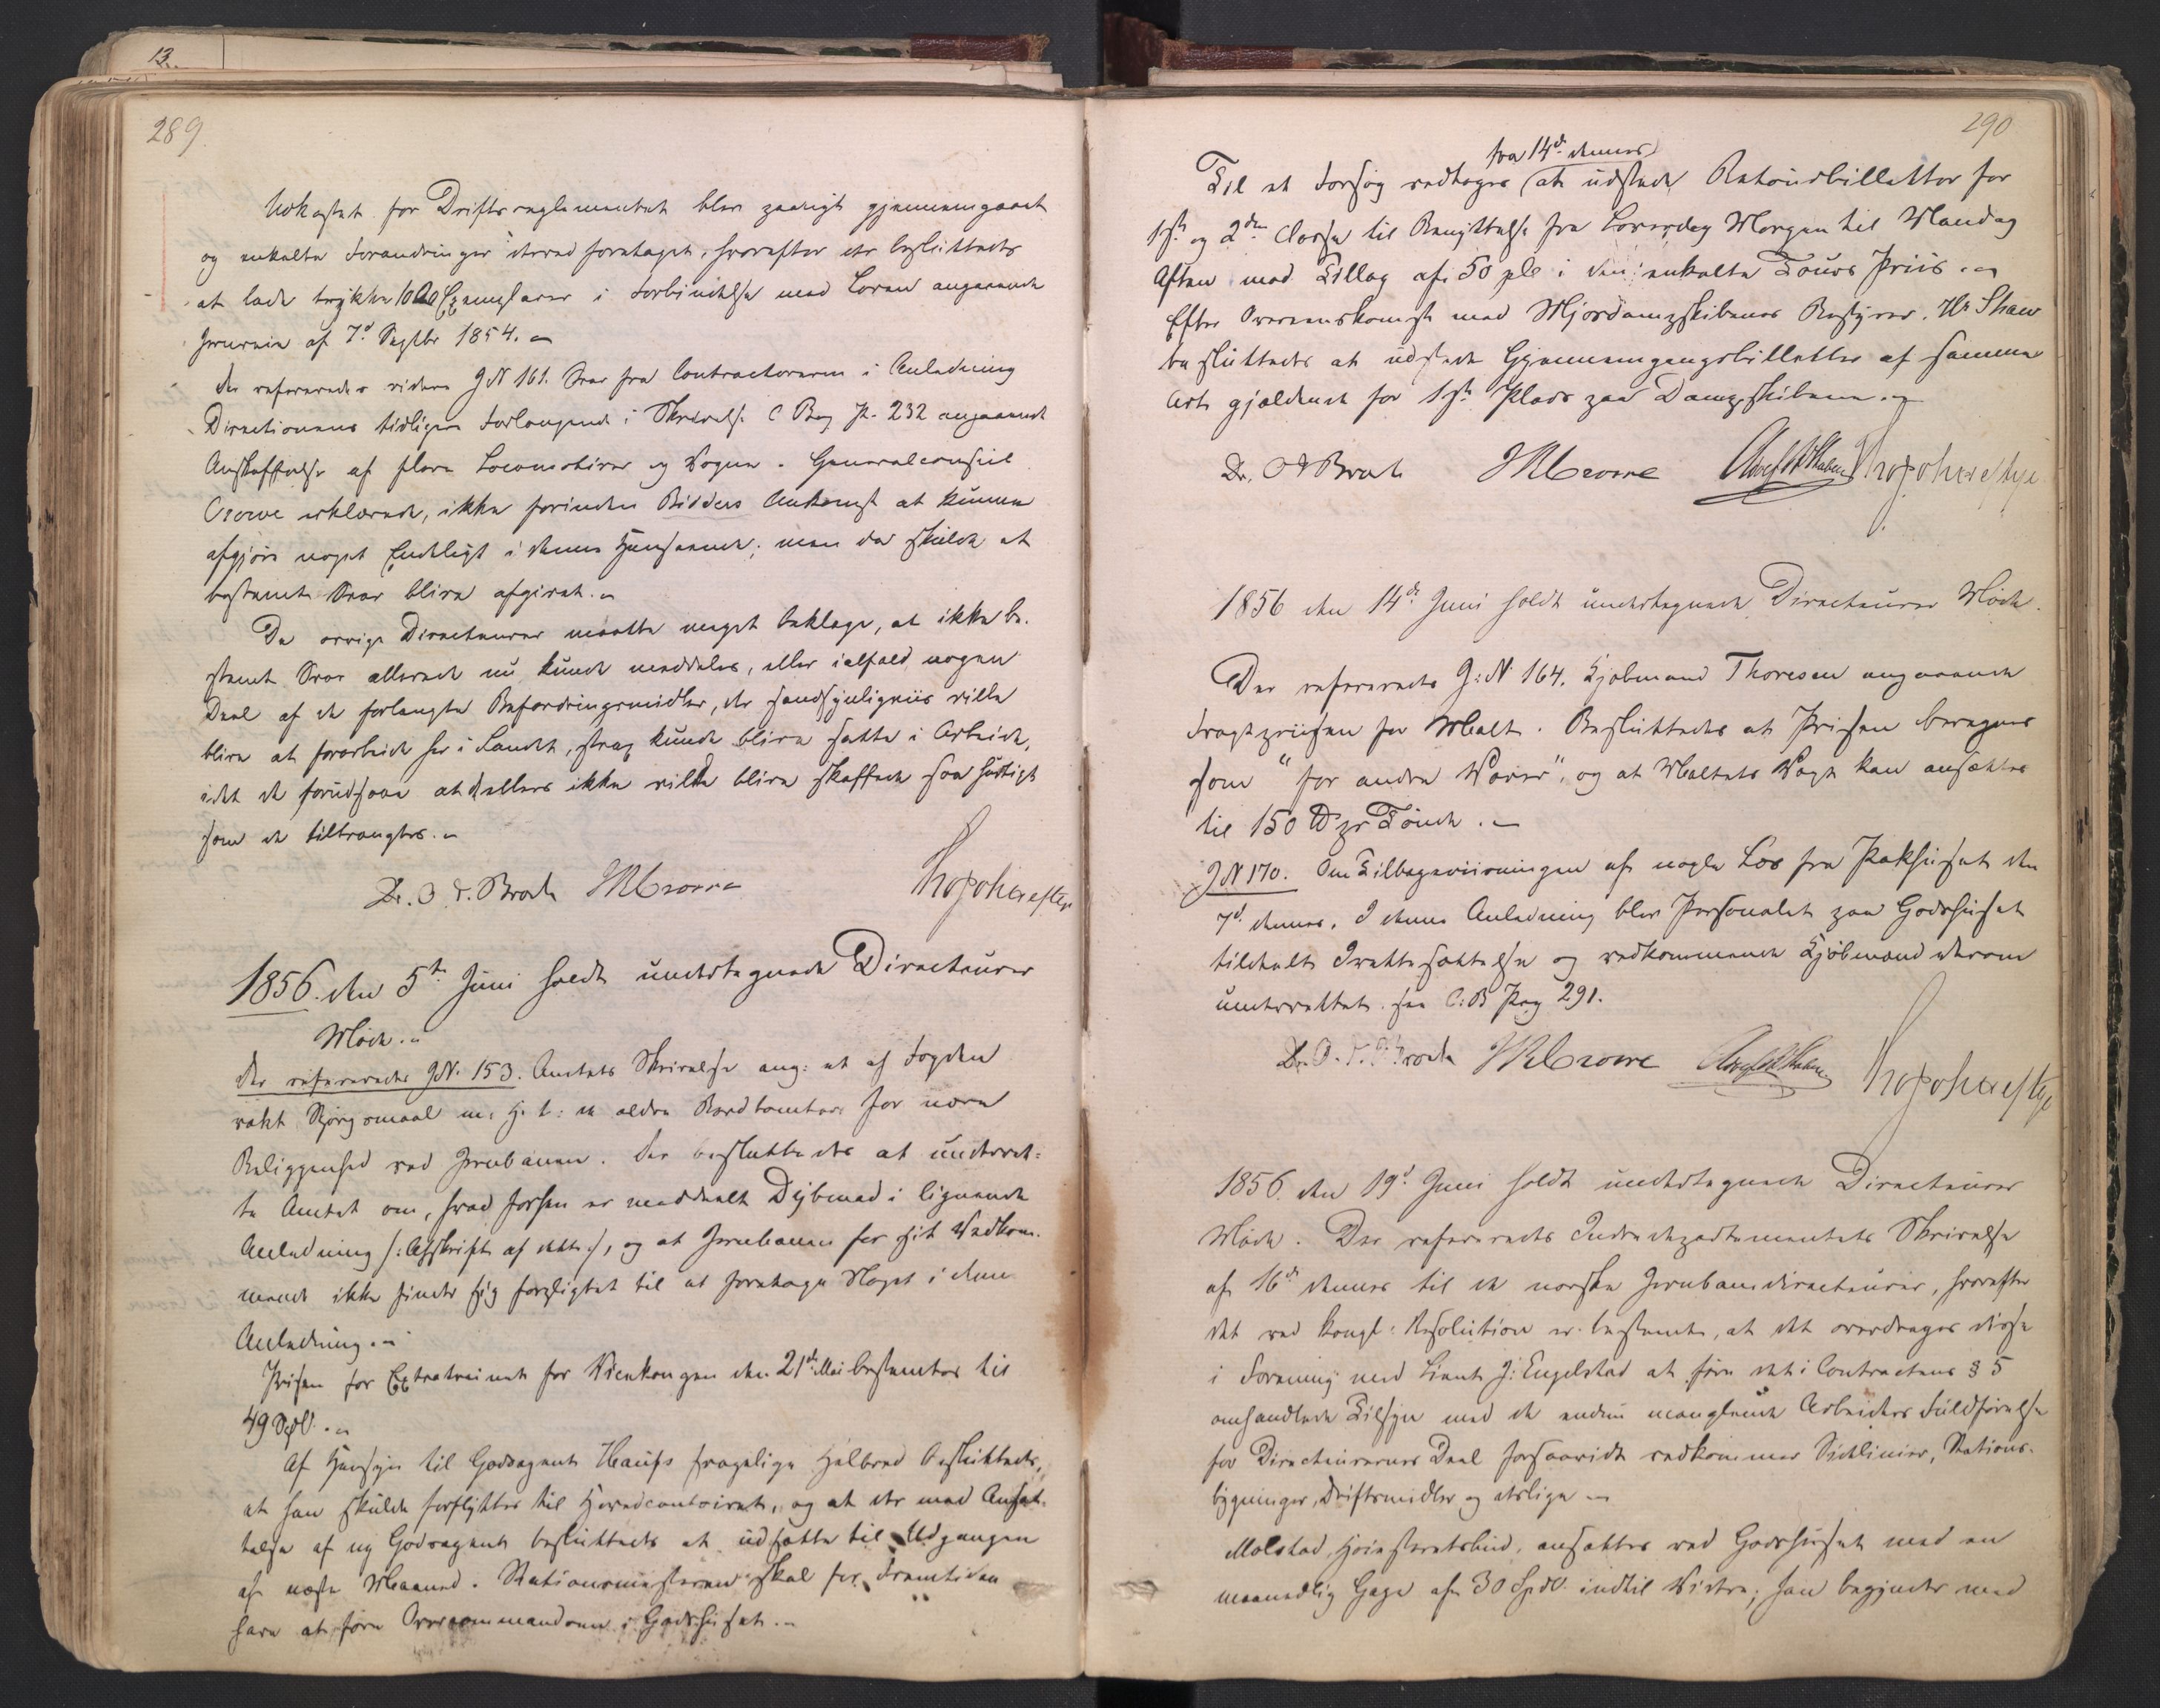 13.
289.
Udkastet for Driftsreglementet blev paanyt gjennemgaaet
og enkelte Forandringer derved foretaget, hvorefter det besluttedes
at lade trykke 1000 Exemplarer i Forbindelse med Loven angaaende
Jernveie af 7d Septbr 1854. -
Der refereredes videre J N 161. Svar fra Contractørerne i Anledning
Directionens tidligere Forlangende i Skrivelse C Bog P. 232 angaaende
Anskaffelse af flere Locomotiver og Vogne. Generalconsul
Crowe erklærede, ikke forinden Bidders Ankomst at kunne
afgjøre noget Endeligt i denne Henseende; men da skulde et
bestemt Svar blive afgivet. -
De øvrige Directeurer maatte meget beklage, at ikke be-
stemt Svar allerede nu kunde meddeles, eller ialfald nogen
Deel af de forlangte Befordringsmidler, der sandsynligviis ville
blive at forarbeide her i Landet, strax kunde blive satte i Arbeide,
idet de forudsaae at d ellers ikke vilde blive skaffede saa hurtigt
som de tiltrængtes. -
Dr. O. J. Broch JRCrowe Thspohrestye
1856. den 5te Juni holdt undertegnede Directeurer
Møde. -
Der refereredes J N. 153. Amtets Skrivelse ang: et af Fogden
vakt Spørgsmaal m. H. t: en ældre Bordtomtes for nære
Beliggenhed ved Jernbanen. Der besluttedes at underret-
te Amtet om, hvad forhen er meddeelt Dybwad i lignende
Anledning /: Afskrift af dette :/, og at Jernbanen for sit Vedkom-
mende ikke finder sig forpligtet til at foretage Noget i denne
Anledning. -
Prisen for Extratrainet for Vicekongen den 21de Mai bestemtes til
49 Spdl. -
Af Hensyn til Godsagent Haufs svagelige Helbred besluttedes,
at han skulde forflyttes til Hovedcontoiret, og at der med Ansæt-
telse af ny Godsagent besluttedes at udsætte til Udgangen
af næste Maaned. Stationsmesteren skal for Fremtiden
have at føre Overcommandoen i Godshuset. -
290
fra 14de dennes
Til et Forsøg vedtoges (at udstede Retourbilletter for
1ste og 2den Classe til Benyttelse fra Løverdag Morgen til Mandag
Aften med Tillæg af 50 pCt i den enkelte Tours Priis. -
Efter Overeenskomst med Mjøsdampskibenes Bestyrer, Hr Shaw
besluttedes at udstede Gjennemgangsbilletter af samme
Art gjældende for 1ste Plads paa Dampskibene. -
Dr. O J Broch JRCrowe
1856 den 14de Juni holdt undertegnede Directeurer Møde.
Der refereredes J: N 164. Kjøbmand Thoresen angaaende
Fragtpriisen for Malt. Besluttedes at Prisen beregnes
som "for andre Varer", og at Maltets Vægt kan ansættes
til 150 ℔ pr Tønde. -
J N 170. Om Tilbageviisningen af nogle Læs fra Pakhuset den
7d dennes. I denne Anledning blev Personalet paa Godshuset
tildeelt Irettesættelse og vedkommende Kjøbmænd derom
underrettet. see C: B Pag 291.
Dr. O. J. Broch JRCrowe
1856. den 19d Juni holdt undertegnede Directeurer
Møde. Der refereredes Indredepartementets Skrivelse
af 16de dennes til de norske Jernbanedirecteurer, hvorefter
det ved kongl: Resolution er bestemt, at det overdrages disse
i Forening med Lieut J: Engelstad at føre det i Contractens § 5
omhandlede Tilsyn med de endnu manglende Arbeiders Fuldførelse
for Directeurernes Deel forsaavidt vedkommer Sidelinier, Stations-
bygninger, Driftsmidler og deslige -
Molstad, Høiesteretsbud, ansættes ved Godshuset med en
maanedlig Gage af 30 Spdl. indtil Videre; han begynder med